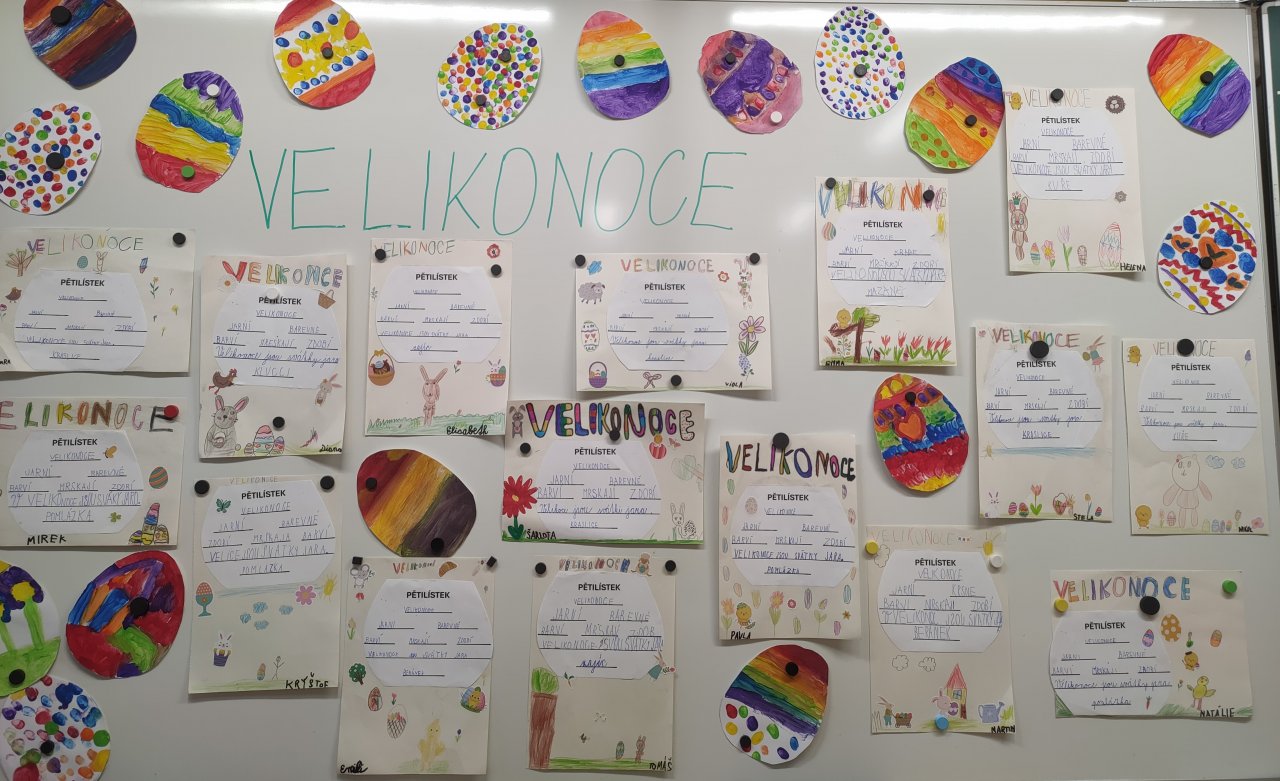 VELIKONOCE
VELIKONOCE
PĚTILÍSTEK
VELIKONOCE
JARNÍ BAREVNÉ
BARVÍ MRSKAJÍ ZDOBÍ
VELIKONOCE JSOU SVÁTKY JARA
KUŘE
HELENA
VELIKONOCE
PĚTILÍSTEK
VELIKONOCE
JARNÍ KRÁSNÉ
BARVÍ MRSKAJÍ ZDOBÍ
MAZANEC
VELIKONOCE
PĚTILÍSTEK
JARNÍ BAREVNÉ
BARVÍ MRSKAJÍ ZDOBÍ
KRASLICE
VELIKONCE
PĚTILÍSTEK
VELIKONOCE
JARNÍ BAREVNÉ
BARVÍ MRSKAJÍ ZDOBÍ
Velikonoce jsou svátky jara
VELIKONOCE
PĚTILÍSTEK
VELIKONOCE
JARNÍ BAREVNÉ
BARVÍ MRSKAJÍ ZDOBÍ
VELIKONOCE JSOU SVÁTKY JARA
zajíc
Elisabeth
VELIKONOCE
PĚTILÍSTEK
VELIKONOCE
BARVÍ MRSKAJÍ ZDOBÍ
Velikonoce jsou svátky jara
VIOLA
VELIKONOCE
PĚTILÍSTEK
VELIKONOCE
JARNÍ BAREVNÉ
BARVÍ MRSKAJÍ ZDOBÍ
Velikonoce jsou svátky jara
KRASLICE
STELA
VELIKONOCE
PĚTILÍSTEK
VELIKONOCE
JARNÍ BAREVNÉ
BARVÍ MRSKAJÍ ZDOBÍ
Velikonoce jsou svátky jara
ELIKONOCE
PĚTILÍSTEK
VELIKONOCE
JARNÍ BAREVNÉ
BARVÍ MRSKAJÍ ZDOBÍ
POMLÁZKA
MIREK
VELIKONOCE
PĚTILÍSTEK
VELIKONOCE
JARNÍ BAREVNÉ
BARVÍ MRSKAJÍ ZDOBÍ
KRASLICE
ŠARLOTA
VELIKONOCE
PĚTILÍSTEK
VELIKONOCE
JARNÍ BAREVNÉ
BARVÍ MRSKAJÍ ZDOBÍ
VELIKONOCE JSOU SVÁTKY JARA
POMLÁZKA
PAVLA
PĚTILÍSTEK
VELIKONOCE
JARNÍ BAREVNÉ
POMLÁZKA
KRYŠTOF
PĚTILÍSTEK
VELIKONOCE
JARNÍ BAREVNÉ
VELIKONOCE JSOU SVÁTKY JARA
BERÁNEK
VELIKONOCE
PĚTILÍSTEK
VELIKONOCE
JARNÍ BAREVNÉ
BARVÍ MRSKAJÍ ZDOBÍ
zajíc
TOMÁŠ
VELIKONOCE
PĚTILÍSTEK
VELIKONOCE
JARNÍ KRÁSNÉ
BARVÍ MRSKAJÍ ZDOBÍ
BERÁNEK
MARTIN
VELIKONOCE
PĚTILÍSTEK
VELIKONOCE
JARNÍ BAREVNÉ
BARVÍ MRSKAJÍ ZDOBÍ
Velikonoce jsou svátky jara
pomlázka
NATÁLIE